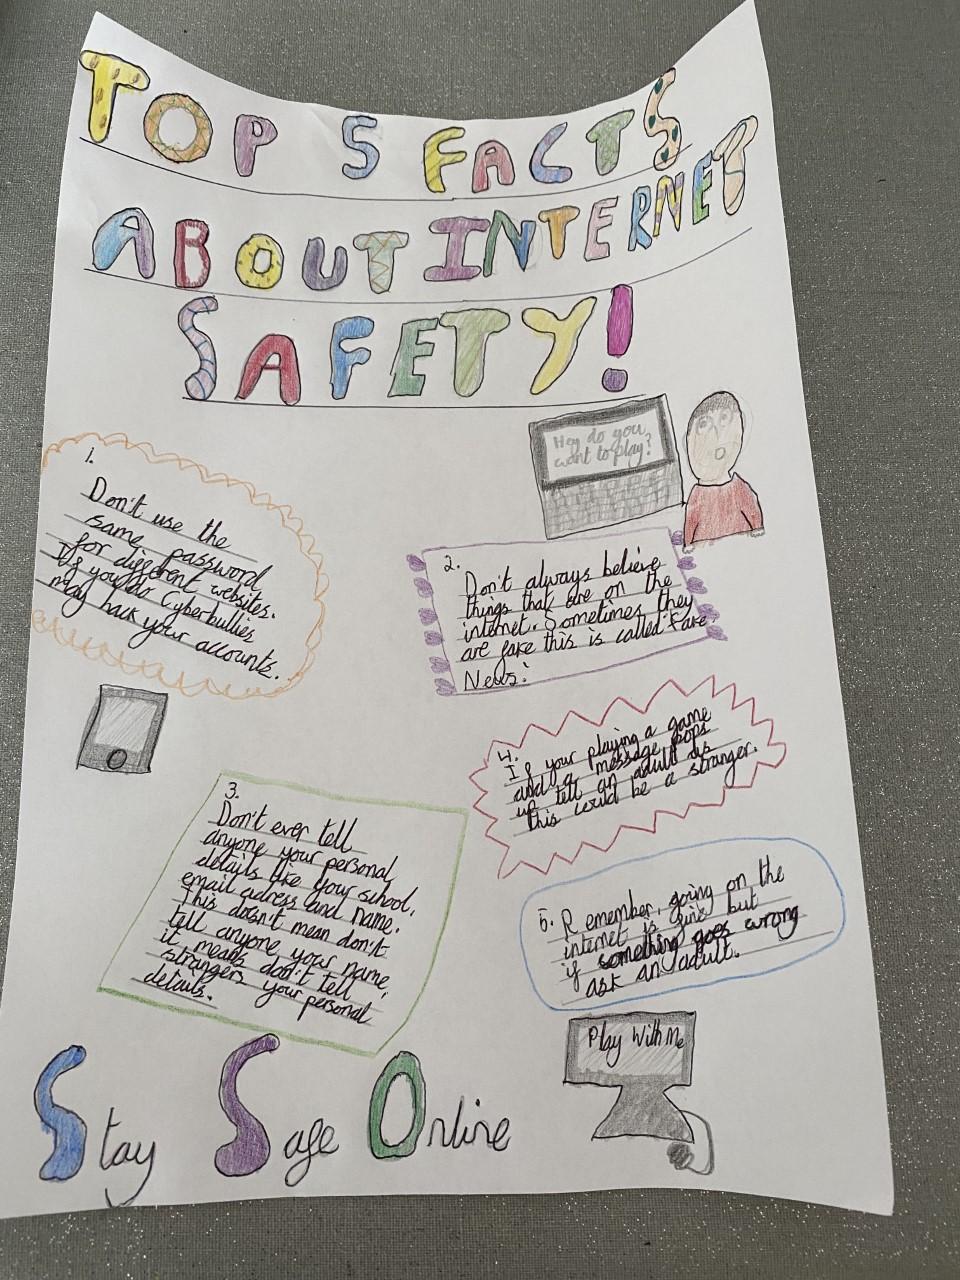 TOP 5 FACTS
ABOUT INTERNET
SAFETY!
Hey do you
want to play?
1.
Don't use the
same password
for different websites.
If you do Cyberbullies
may hack your accounts.
2.
Don't always believe
things that are on the
internet. Sometimes they
are fake this is called 'Fake
News'.
4.
If your playing a game
and a message pops
up tell an adult as
this could be a stranger.
3.
Don't ever tell
anyone your personal
details like your school,
email adress and name.
This doesn't mean don't
tell anyone your name,
it means don't tell
strangers your personal
details.
5. Remember, going on the
internet is fine but
if something goes wrong
ask an adult.
Play With Me
Stay Safe Online